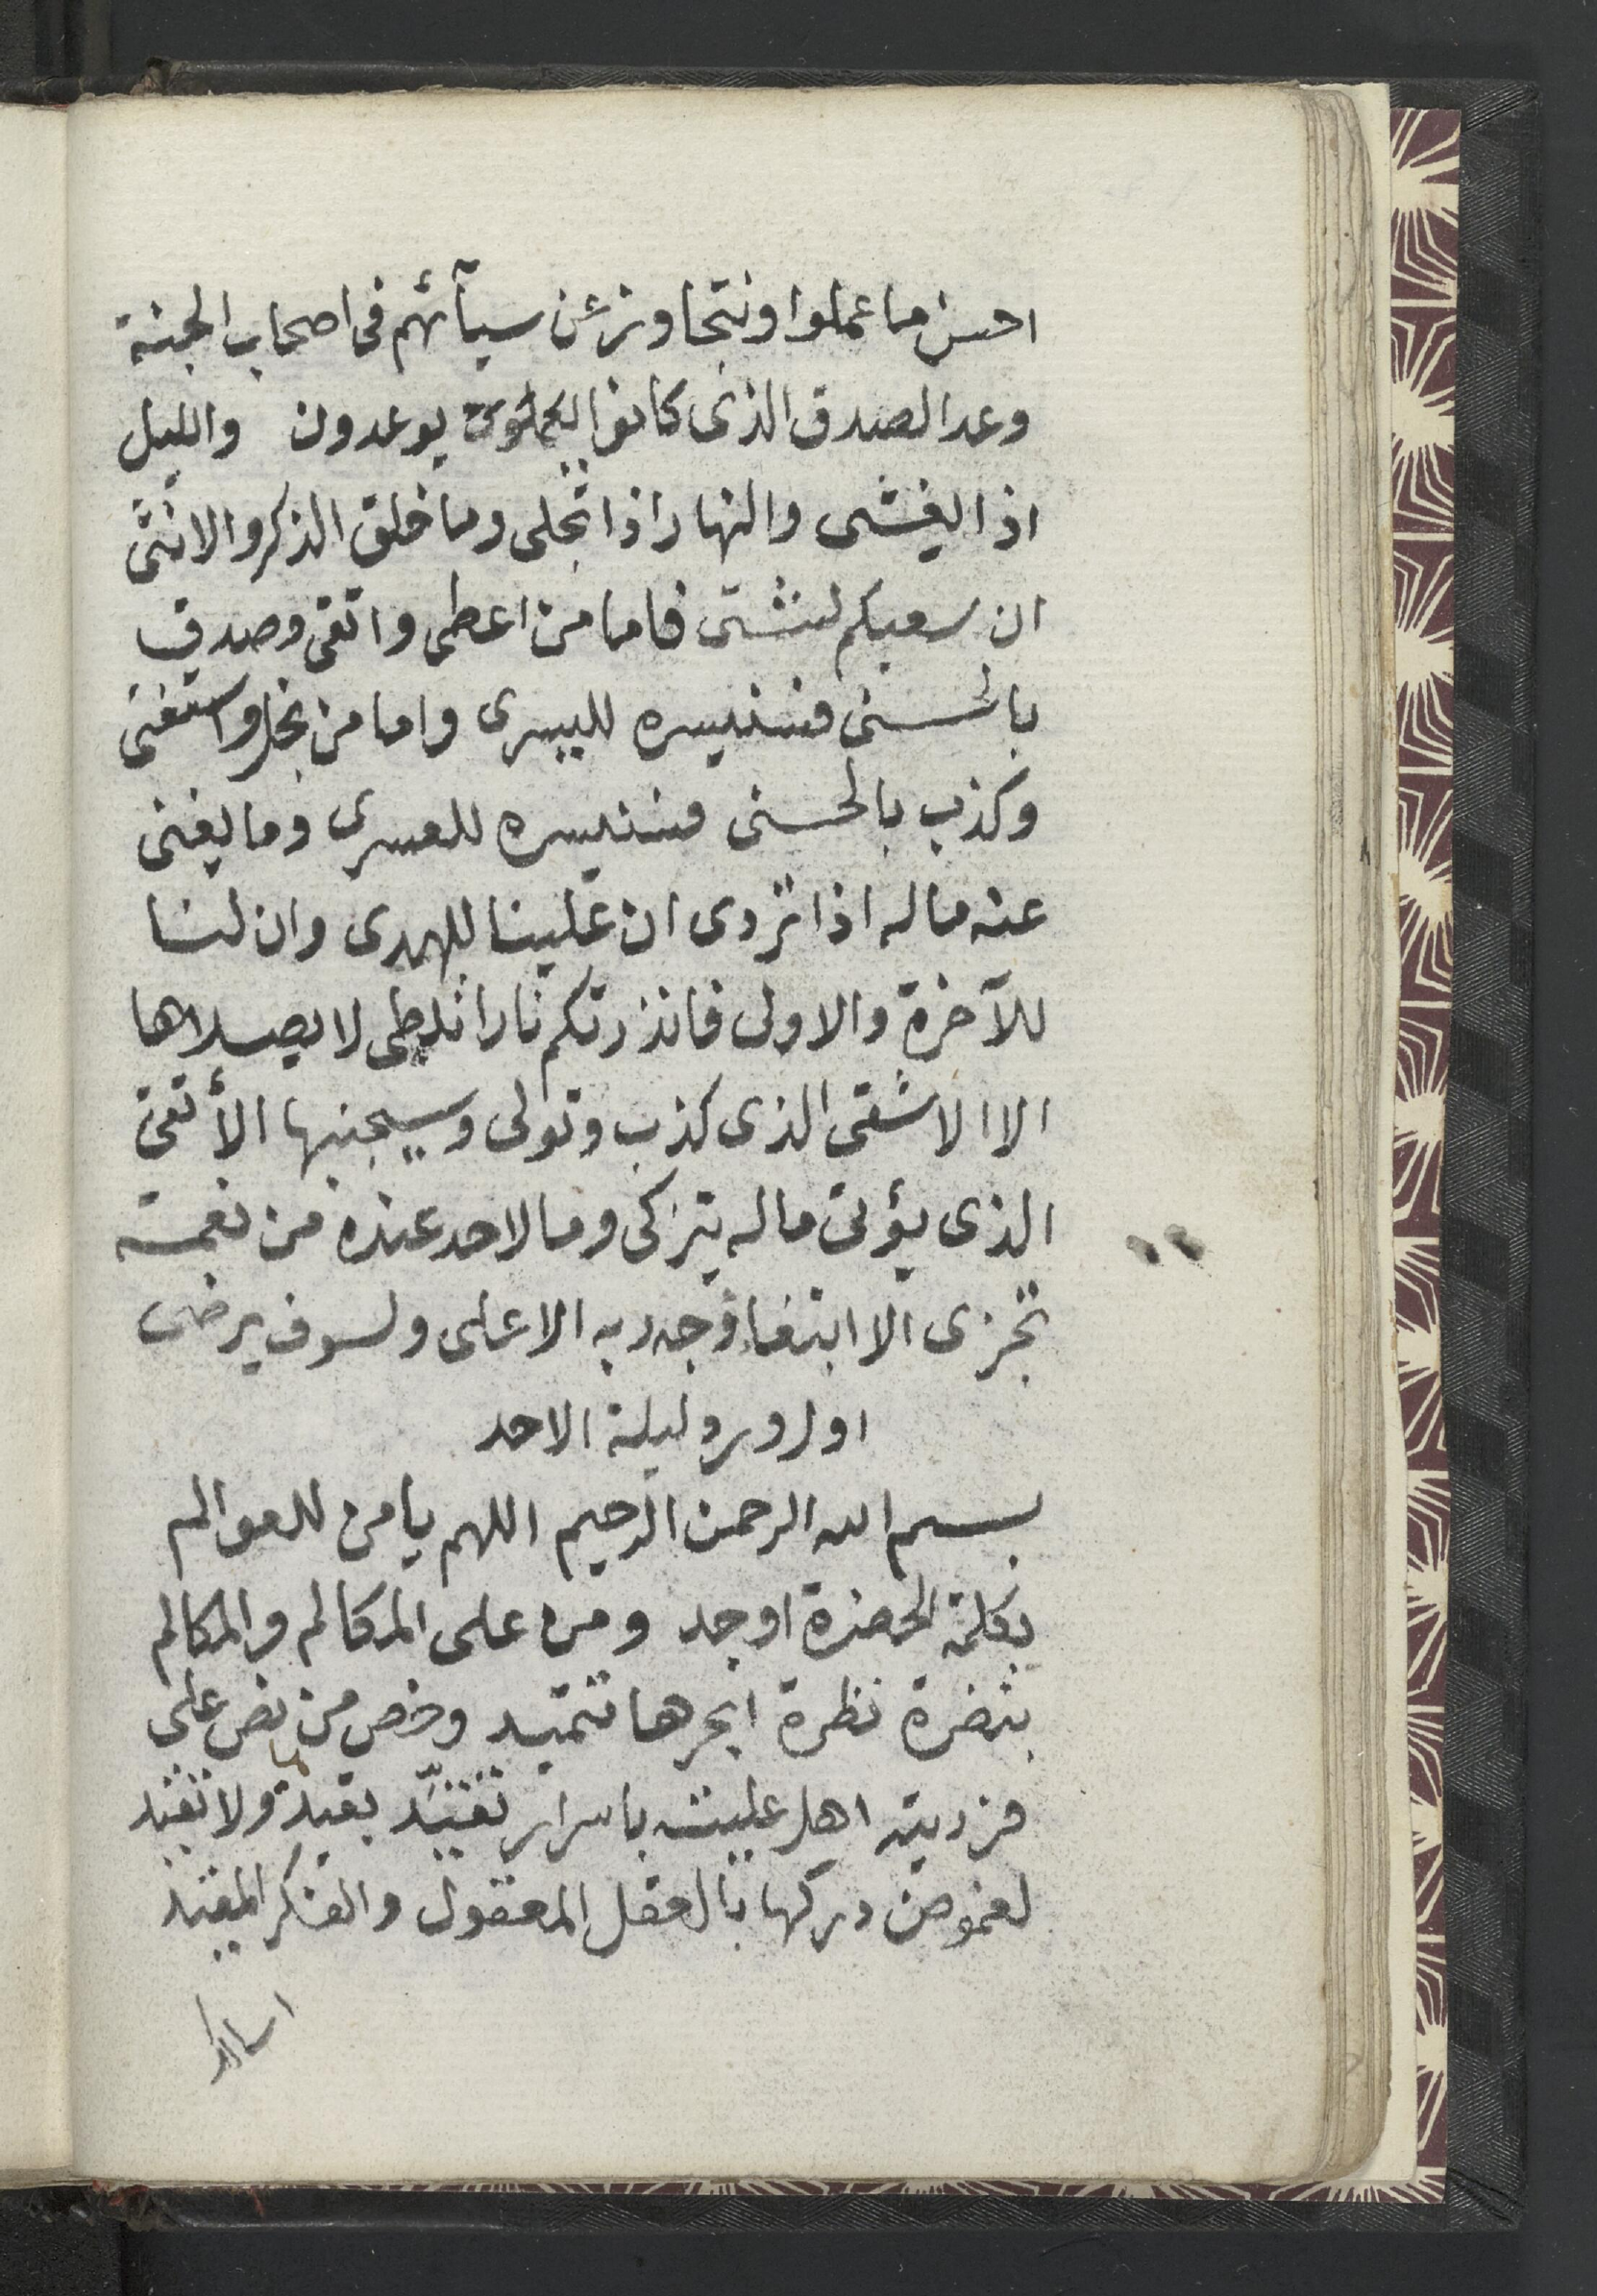 احسن ما عملوا ونتجاوز عن سيآئتهم فى اصحاب الجنة
وعد الصدق الذى كانوا يوعدون والليل
اذا يغشى والنهار اذا تجلى وما خلق الذكر والانثى
ان سعيكم لشتى فاما من اعطى واتقى وصدق
بالحسنى فسنيسره لليسرى واما من بخل واستغنى
وكذب بالحسنى فسنيسره للعسرى وما يغنى
عنه ماله اذا تردى ان علينا للهدى وان لنا
للآخرة والاولى فانذرتكم نارا تلظى لا يصلاها
الا الاشقى الذى كذب وتولى وسيجنبها الأتقى
الذى يؤتى ماله يتزكى وما لاحد عنده من نعمة
تجزى الا ابتغاء وجه ربه الاعلى ولسوف يرضى
اول ورد ليلة الاحد
بسم الله الرحمن الرحيم اللهم يا من للعوالم
بكلمة الحضرة اوجد ومن على المكالم والمكالم
بنضرة نظرة ابحرها تتميد وخص من نص على
فرديته اهل عليته باسرار تفتيد بقيدها ولا تفيد
لغموض دركها بالعقل المعقول والفكر المقيد